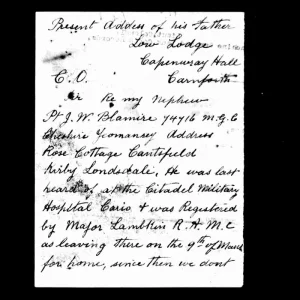 Present Addess of his father
Low Lodge
Capenwray Hall
Carnforth
C.O.
Sir Re my Nephew
Pt J. W. Blamire 74716 M.G.C
Cheshire Yomansey Address
Rose Cottage Cantsfield
Kirby Londsdale, He was last
heard of at the Citadel Military
Hospital Cario & was Registored
by Major Lambkin R.A.M.C
as leaving there on the 9th of March
for home, since then we dont